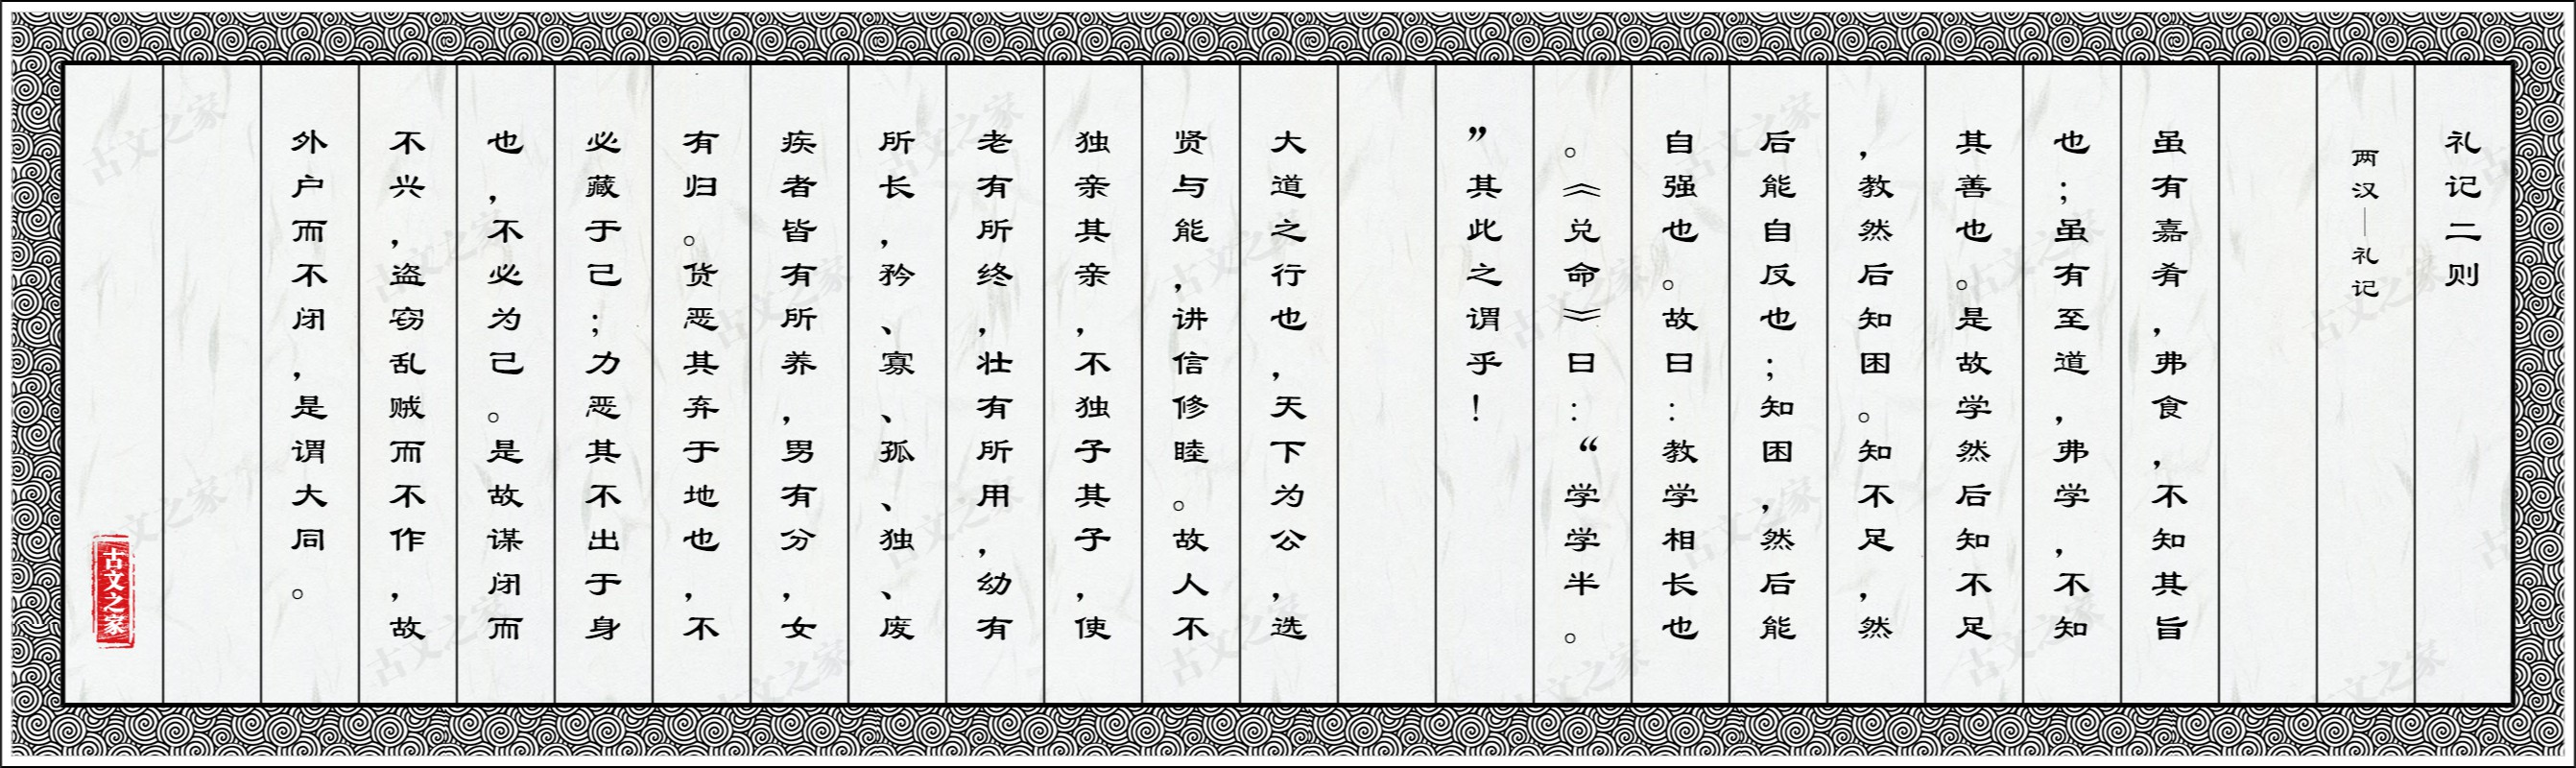 礼记二则
两汉—礼记
虽有嘉肴，弗食，不知其旨
也；虽有至道，弗学，不知
其善也。是故学然后知不足
，教然后知困。知不足，然
后能自反也；知困，然后能
自强也。故曰：教学相长也
。《兑命》曰：“学学半。
”其此之谓乎！
大道之行也，天下为公，选
贤与能，讲信修睦。故人不
独亲其亲，不独子其子，使
老有所终，壮有所用，幼有
所长，矜、寡、孤、独、废
疾者皆有所养，男有分，女
有归。货恶其弃于地也，不
必藏于己；力恶其不出于身
也，不必为己。是故谋闭而
不兴，盗窃乱贼而不作，故
外户而不闭，是谓大同。
古文之家